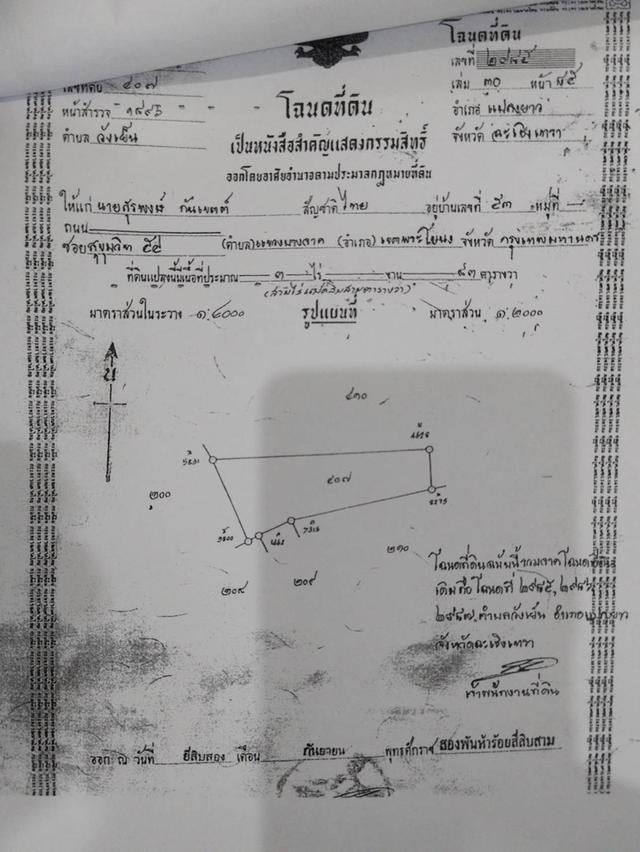 โฉนดที่ดิน
เลขที่ ๒๙๘๕
เลขที่ดิน ๔๐๗
เล่ม ๓๐ หน้า ๘๕
หน้าสำรวจ ๑๙๙๖
อำเภอ แปลงยาว
โฉนดที่ดิน
ตำบล วังเย็น
จังหวัด ฉะเชิงเทรา
เป็นหนังสือสำคัญแสดงกรรมสิทธิ์
ออกโดยอาศัยอำนาจตามประมวลกฎหมายที่ดิน
ให้แก่ นายสุรพงษ์ สัญชาติ ไทย อยู่บ้านเลขที่ ๕๓ หมู่ที่ —
ถนน
ซอยสุขุมวิท ๕๕ (ตำบล) (อำเภอ) เขตพระโขนง จังหวัด กรุงเทพมหานคร
ที่ดินแปลงนี้มีเนื้อที่ประมาณ ๓ ไร่ งาน ๘๓ ตารางวา
(สามไร่แปดสิบสามตารางวา)
มาตราส่วนในระวาง ๑:๔๐๐๐ รูปแผนที่ มาตราส่วน ๑:๒๐๐๐
น
๔๓๐
๔๐๗
๒๐๐
๒๑๐
๒๐๙
๒๐๘
โฉนดที่ดินฉบับนี้รวมจากโฉนดที่ดิน
เดิมคือโฉนดที่ ๒๙๘๕, ๒๙๘๖,
๒๙๘๗ ตำบลวังเย็น อำเภอแปลงยาว
จังหวัดฉะเชิงเทรา
เจ้าพนักงานที่ดิน
ออก ณ วันที่ ยี่สิบสอง เดือน กันยายน พุทธศักราช สองพันห้าร้อยสี่สิบสาม